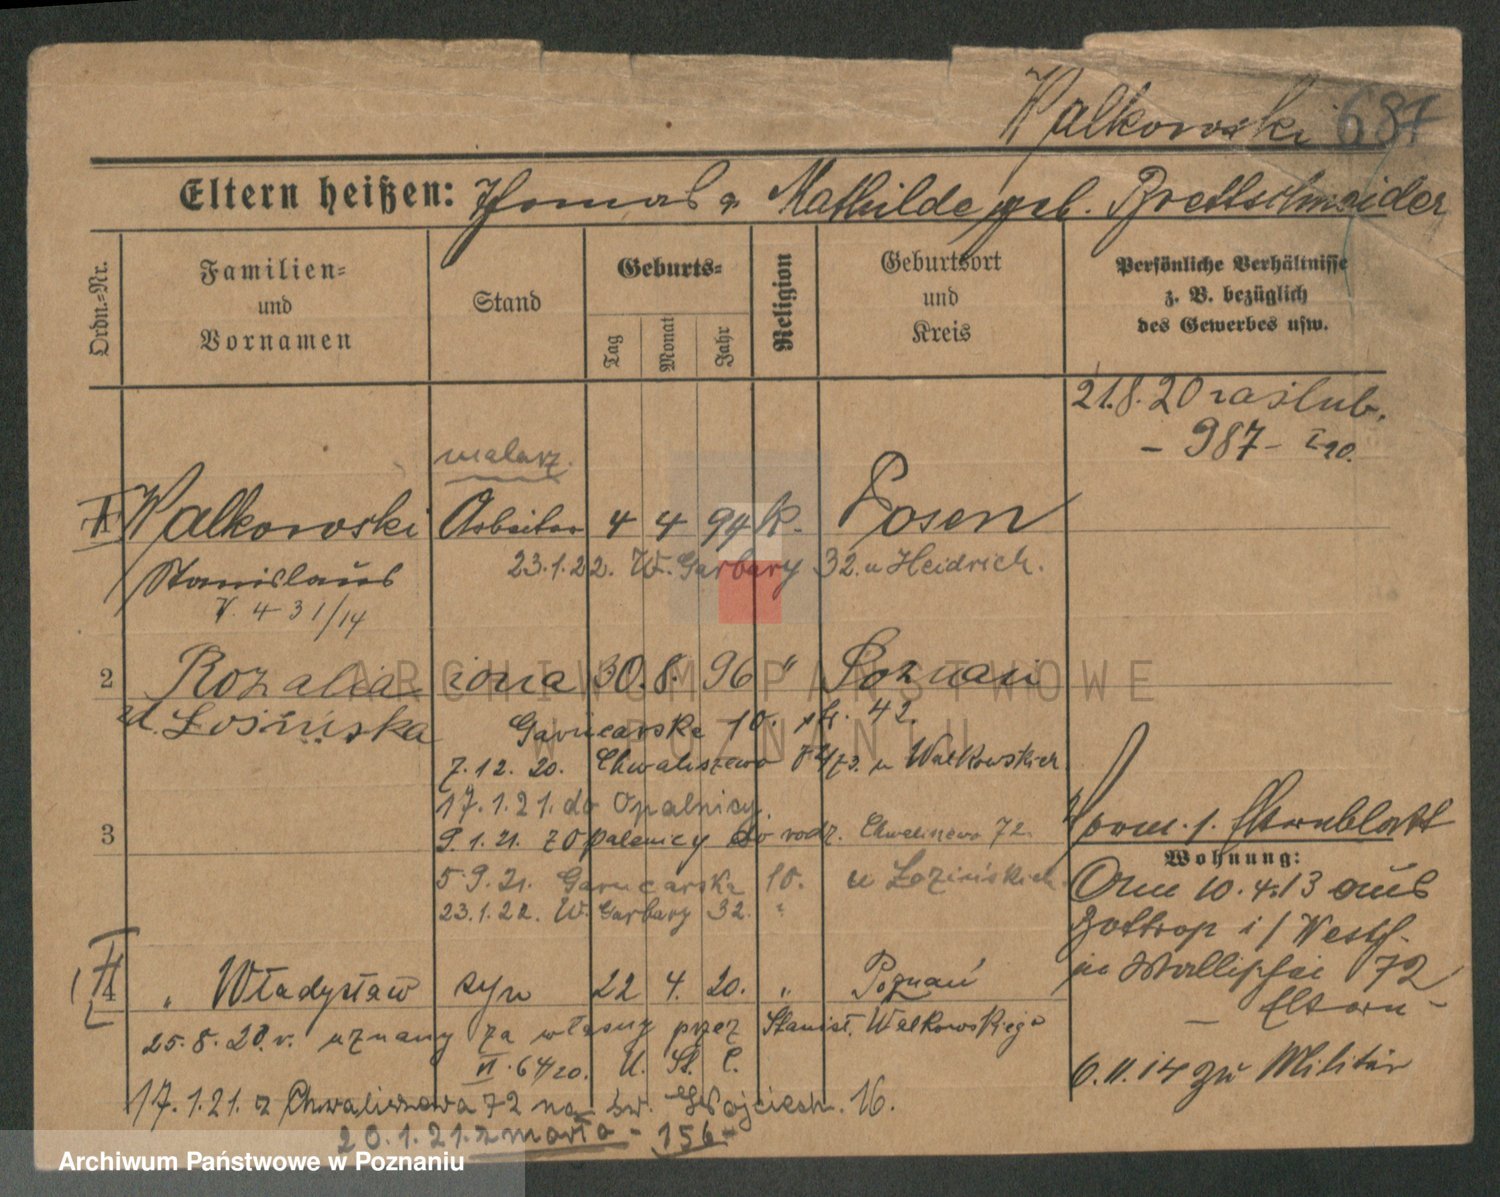 Walkowski 687
Eltern heißen: Thomas u Mathilde geb. Brettschneider
Ordn.-Nr.
Familien-
und
Vornamen
Stand
Geburts-
Tag
Monat
Jahr
Religion
Geburtsort
und
Kreis
Persönliche Verhältnisse
z. B. bezüglich
des Gewerbes usw.
21.8.20 zaślub.
- 987 - I 20.
malarz.
I Walkowski Arbeiter 4 4 94 K. Posen
Stanislaus 23.1.22. W. Garbary 32. u Heidrich.
V. 431/14
2 Rozalia żona 30. 8. 96 " Poznań
z d. Łosińska
Garncarska 10. 42.
7.12.20. Chwaliszewo 72/73. u Walkowskich
17.1.21. do Opalenicy.
3 9.1.21. z Opalenicy do rodz. Chwaliszewo 72.
5.9.21. Garncarska 10. u Łozińskich
23.1.22. W. Garbary 32. "
Vorm. s. Elternblatt
Wohnung:
Am 10.4.13 aus
Bottrop i/Westf.
in Wallischei 72
- Eltern -
6.11.14 zu Militär
II 4 " Władysław syn 22 4. 20. " Poznań
25.8.20.r. uznany za własny przez Stanisł. Walkowskiego
U. St. C.
17.1.21. z Chwaliszewa 72 na św. Wojciech. 16.
20.1.21. zmarło - 156 -
ARCHIWUM PAŃSTWOWE
W POZNANIU
Archiwum Państwowe w Poznaniu